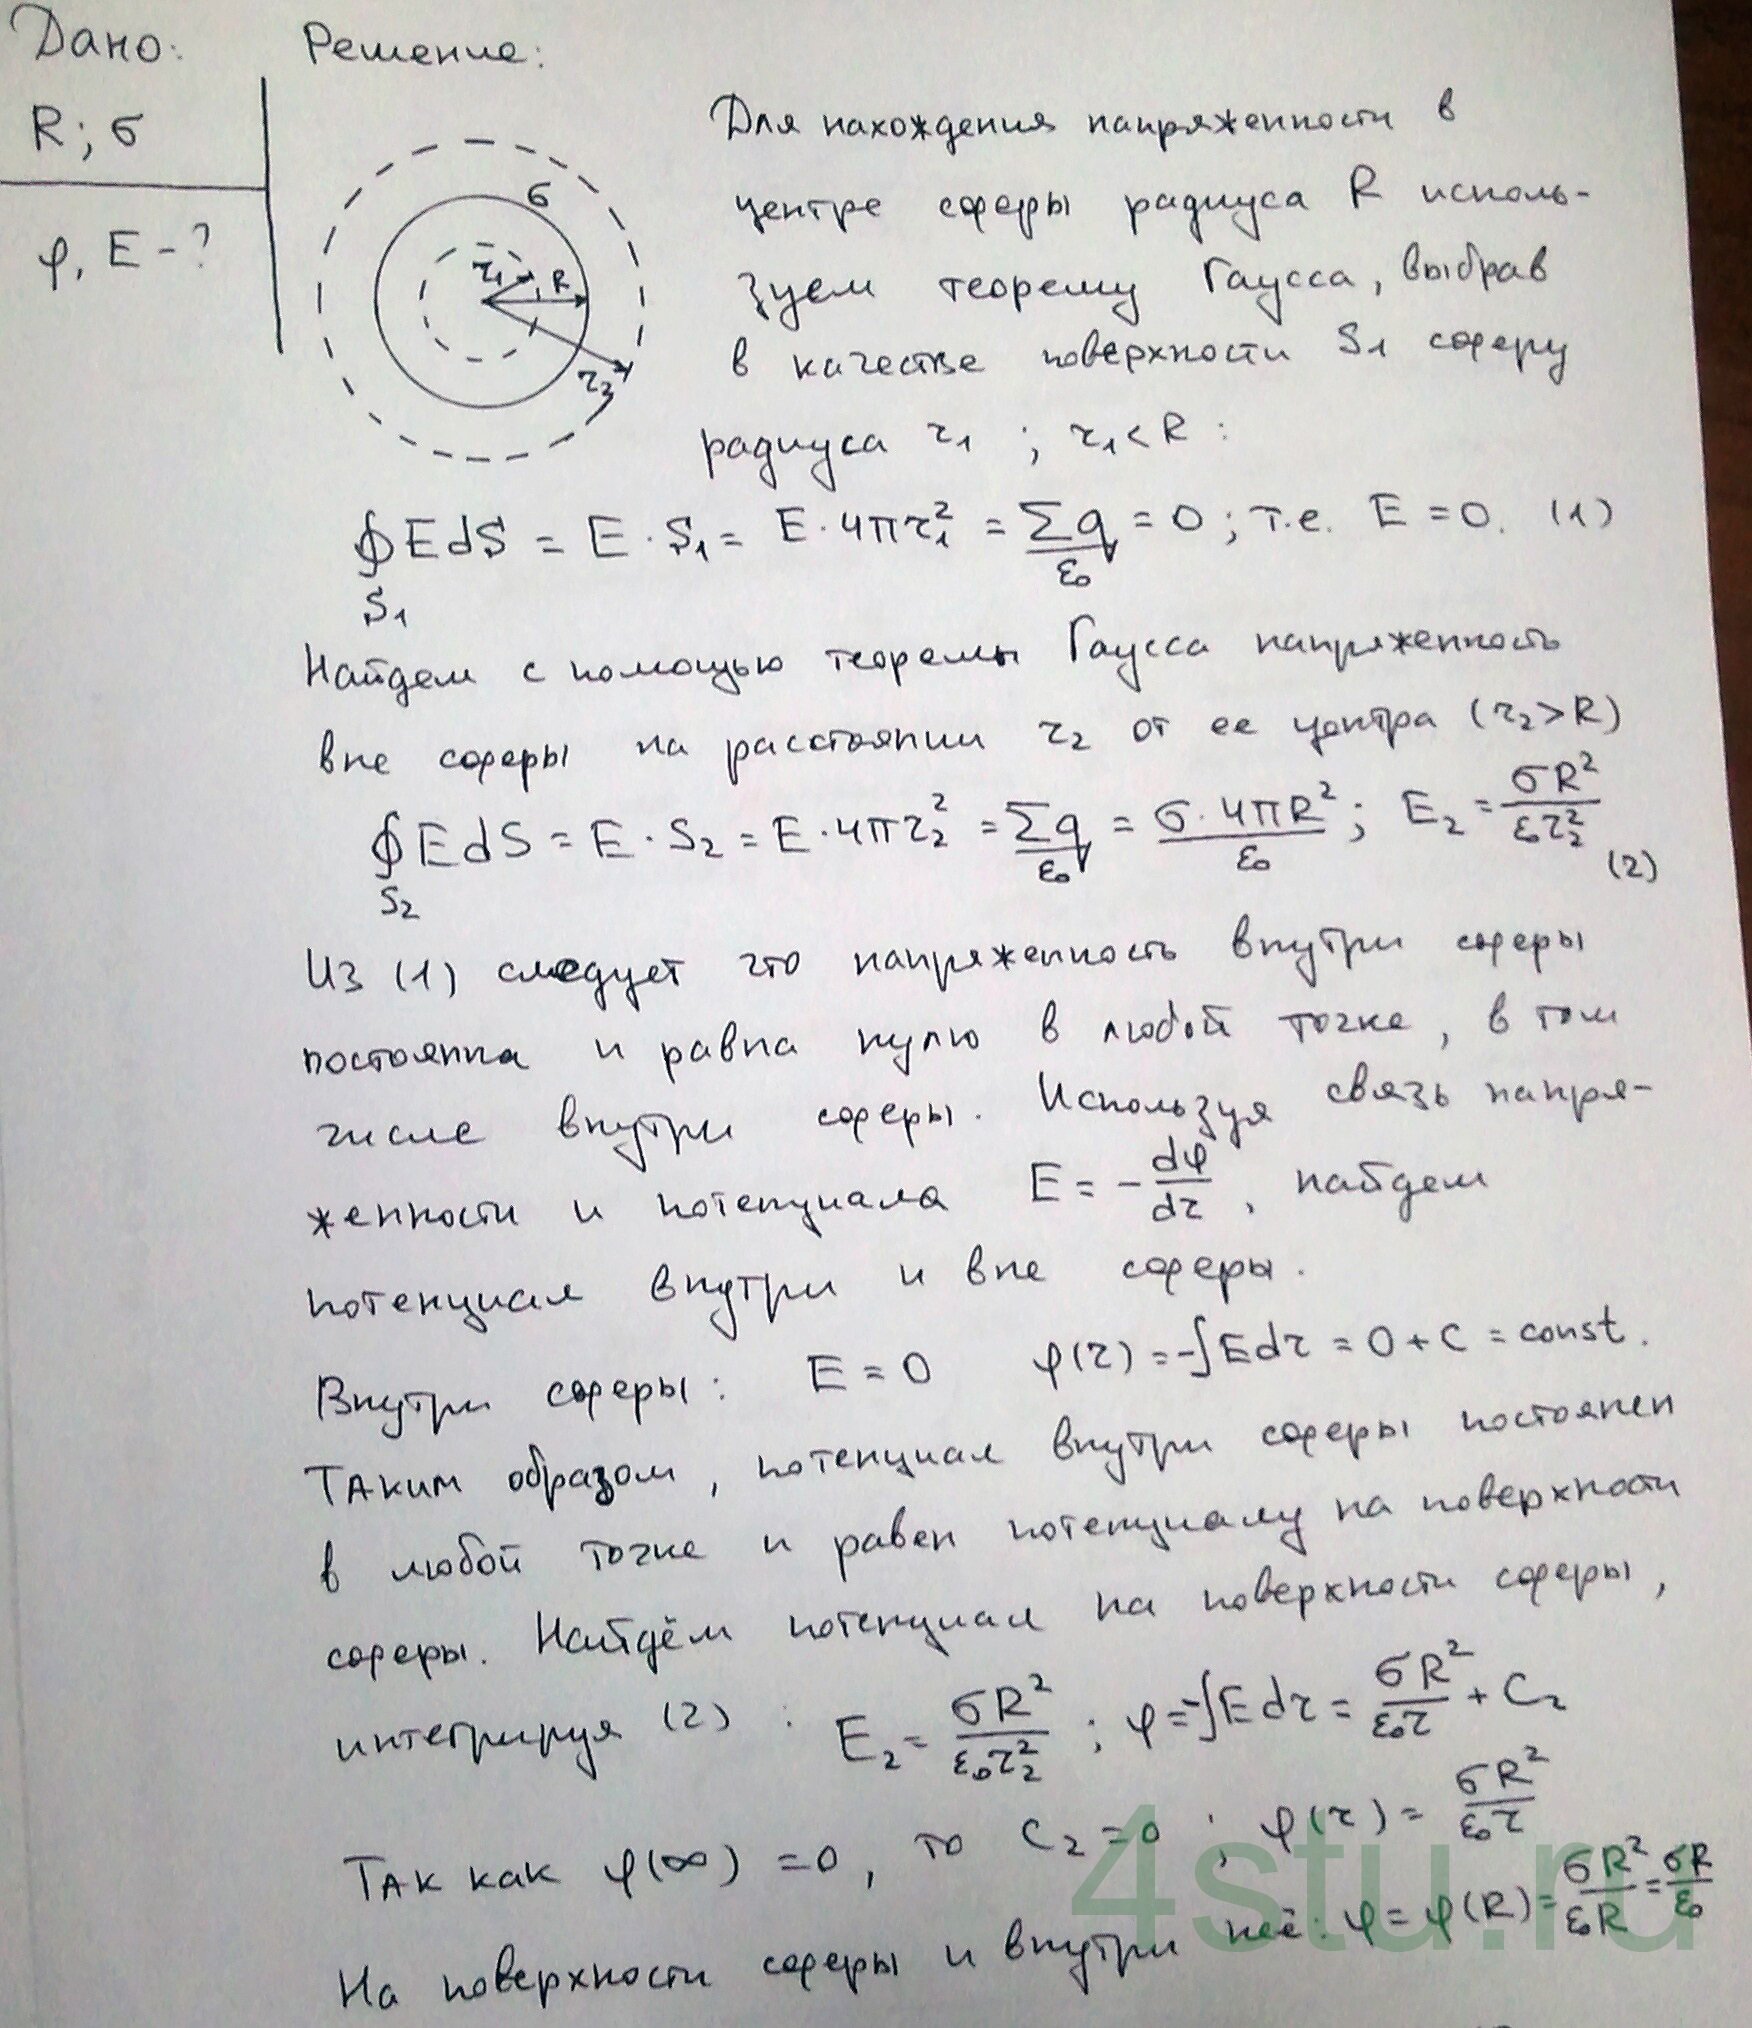 Дано:
R; σ
φ, E - ?
Решение:
σ
r₁
R
r₂
Для нахождения напряженности в
центре сферы радиуса R исполь-
зуем теорему Гаусса, выбрав
в качестве поверхности S₁ сферу
радиуса r₁ ; r₁ < R :
∮EdS = E · S₁ = E · 4πr₁² = Σq/ε₀ = 0 ; т.е. E = 0. (1)
S₁
Найдем с помощью теоремы Гаусса напряженность
вне сферы на расстоянии r₂ от ее центра (r₂ > R)
∮EdS = E · S₂ = E · 4πr₂² = Σq/ε₀ = σ · 4πR²/ε₀ ; E₂ = σR²/ε₀r₂²
S₂
(2)
Из (1) следует что напряженность внутри сферы
постоянна и равна нулю в любой точке, в том
числе внутри сферы. Используя связь напря-
женности и потенциала E = - dφ/dr , найдем
потенциал внутри и вне сферы.
Внутри сферы: E = 0 φ(r) = -∫Edr = 0 + C = const.
Таким образом, потенциал внутри сферы постоянен
в любой точке и равен потенциалу на поверхности
сферы. Найдём потенциал на поверхности сферы,
интегрируя (2) : E₂ = σR²/ε₀r₂² ; φ = -∫Edr = σR²/ε₀r + C₂
Так как φ(∞) = 0, то C₂ = 0 ; φ(r) = σR²/ε₀r
На поверхности сферы и внутри неё: φ = φ(R) = σR²/ε₀R = σR/ε₀
4stu.ru